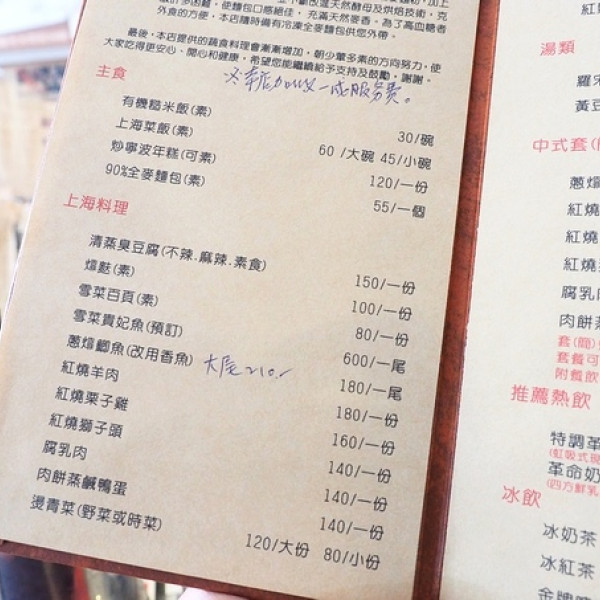 外食的方便，本店隨時備有冷凍全麥麵包供您外帶。
最後，本店提供的蔬食料理會漸漸增加，朝少葷多素的方向努力，使
大家吃得更安心、開心和健康，希望您能繼續給予支持及鼓勵，謝謝。
主食
有磯糙米飯(素) 30/碗
上海菜飯(素) 60/大碗 45/小碗
炒寧波年糕(可素) 120/一份
90%全麥麵包(素) 55/一個
上海料理
清蒸臭豆腐(不辣.麻辣.素食) 150/一份
煊麩(素) 100/一份
雪菜百頁(素) 80/一份
雪菜貴妃魚(預訂) 600/一尾
蔥煊鯽魚(改用香魚) 大尾210.- 180/一尾
紅燒羊肉 180/一份
紅燒栗子雞 160/一份
紅燒獅子頭 140/一份
腐乳肉 140/一份
肉餅蒸鹹鴨蛋 140/一份
燙青菜(野菜或時菜) 120/大份 80/小份
湯類
羅宋
黃豆
中式套
蔥煊
紅燒
紅燒
紅燒
腐乳
肉餅蒸
套餐可
附餐飲
推薦熱飲
特調革
(虹吸式
革命奶
(四方鮮乳
冰飲
冰奶茶
冰紅茶
金牌